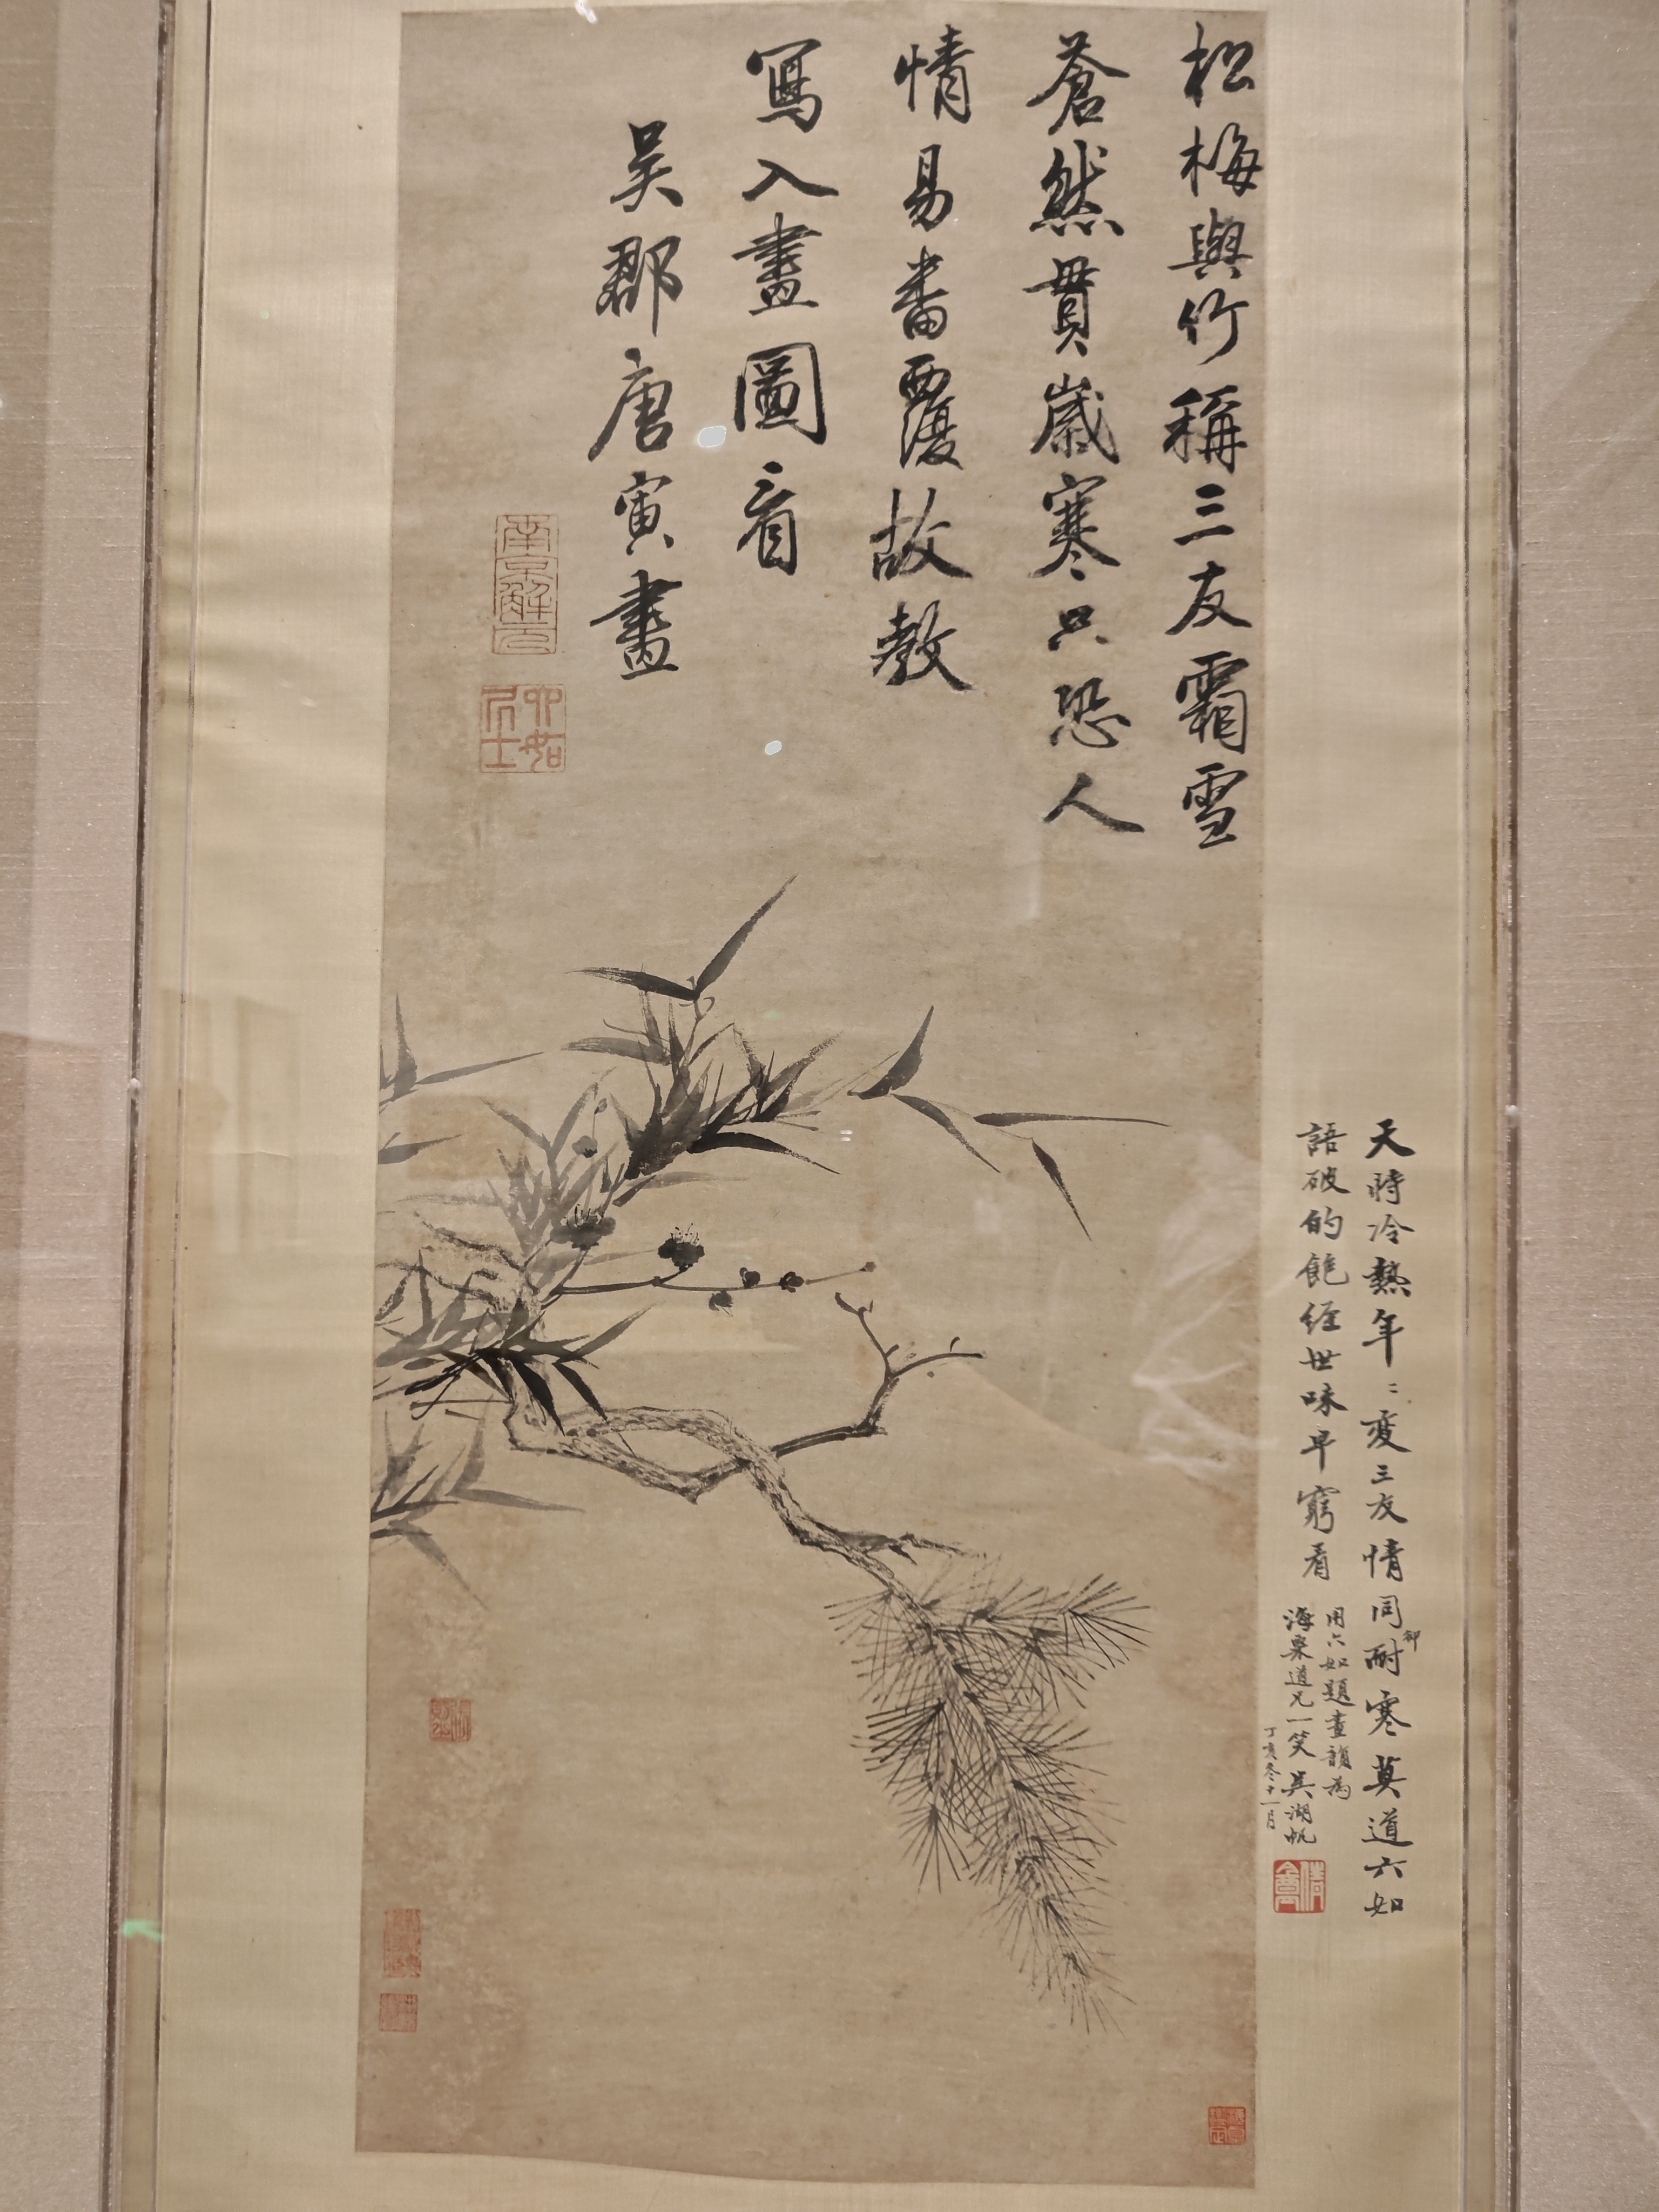 松梅與竹稱三友霜雪
蒼然貫歲寒只恐人
情易番覆故教
寫入畫圖看
吳郡唐寅畫
南京解元
六如居士
天時冷熱年〻變三友情同耐寒莫道六如
卻
語破的飽經世味早窮看
用六如題畫韻為
海粟道兄一笑 吳湖帆
丁亥冬十一月